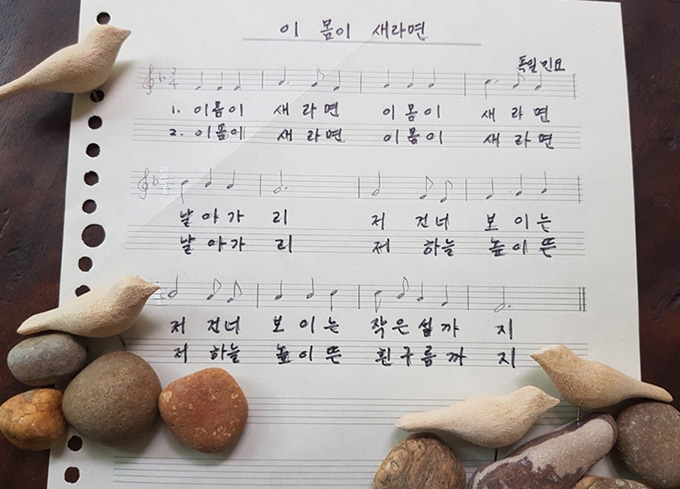 이 몸이 새라면
독일 민요
1. 이몸이 새라면 이몸이 새라면
2. 이몸이 새라면 이몸이 새라면
날아가리 저 건너 보이는
날아가리 저 하늘 높이뜬
저 건너 보이는 작은섬까지
저 하늘 높이뜬 흰구름까지